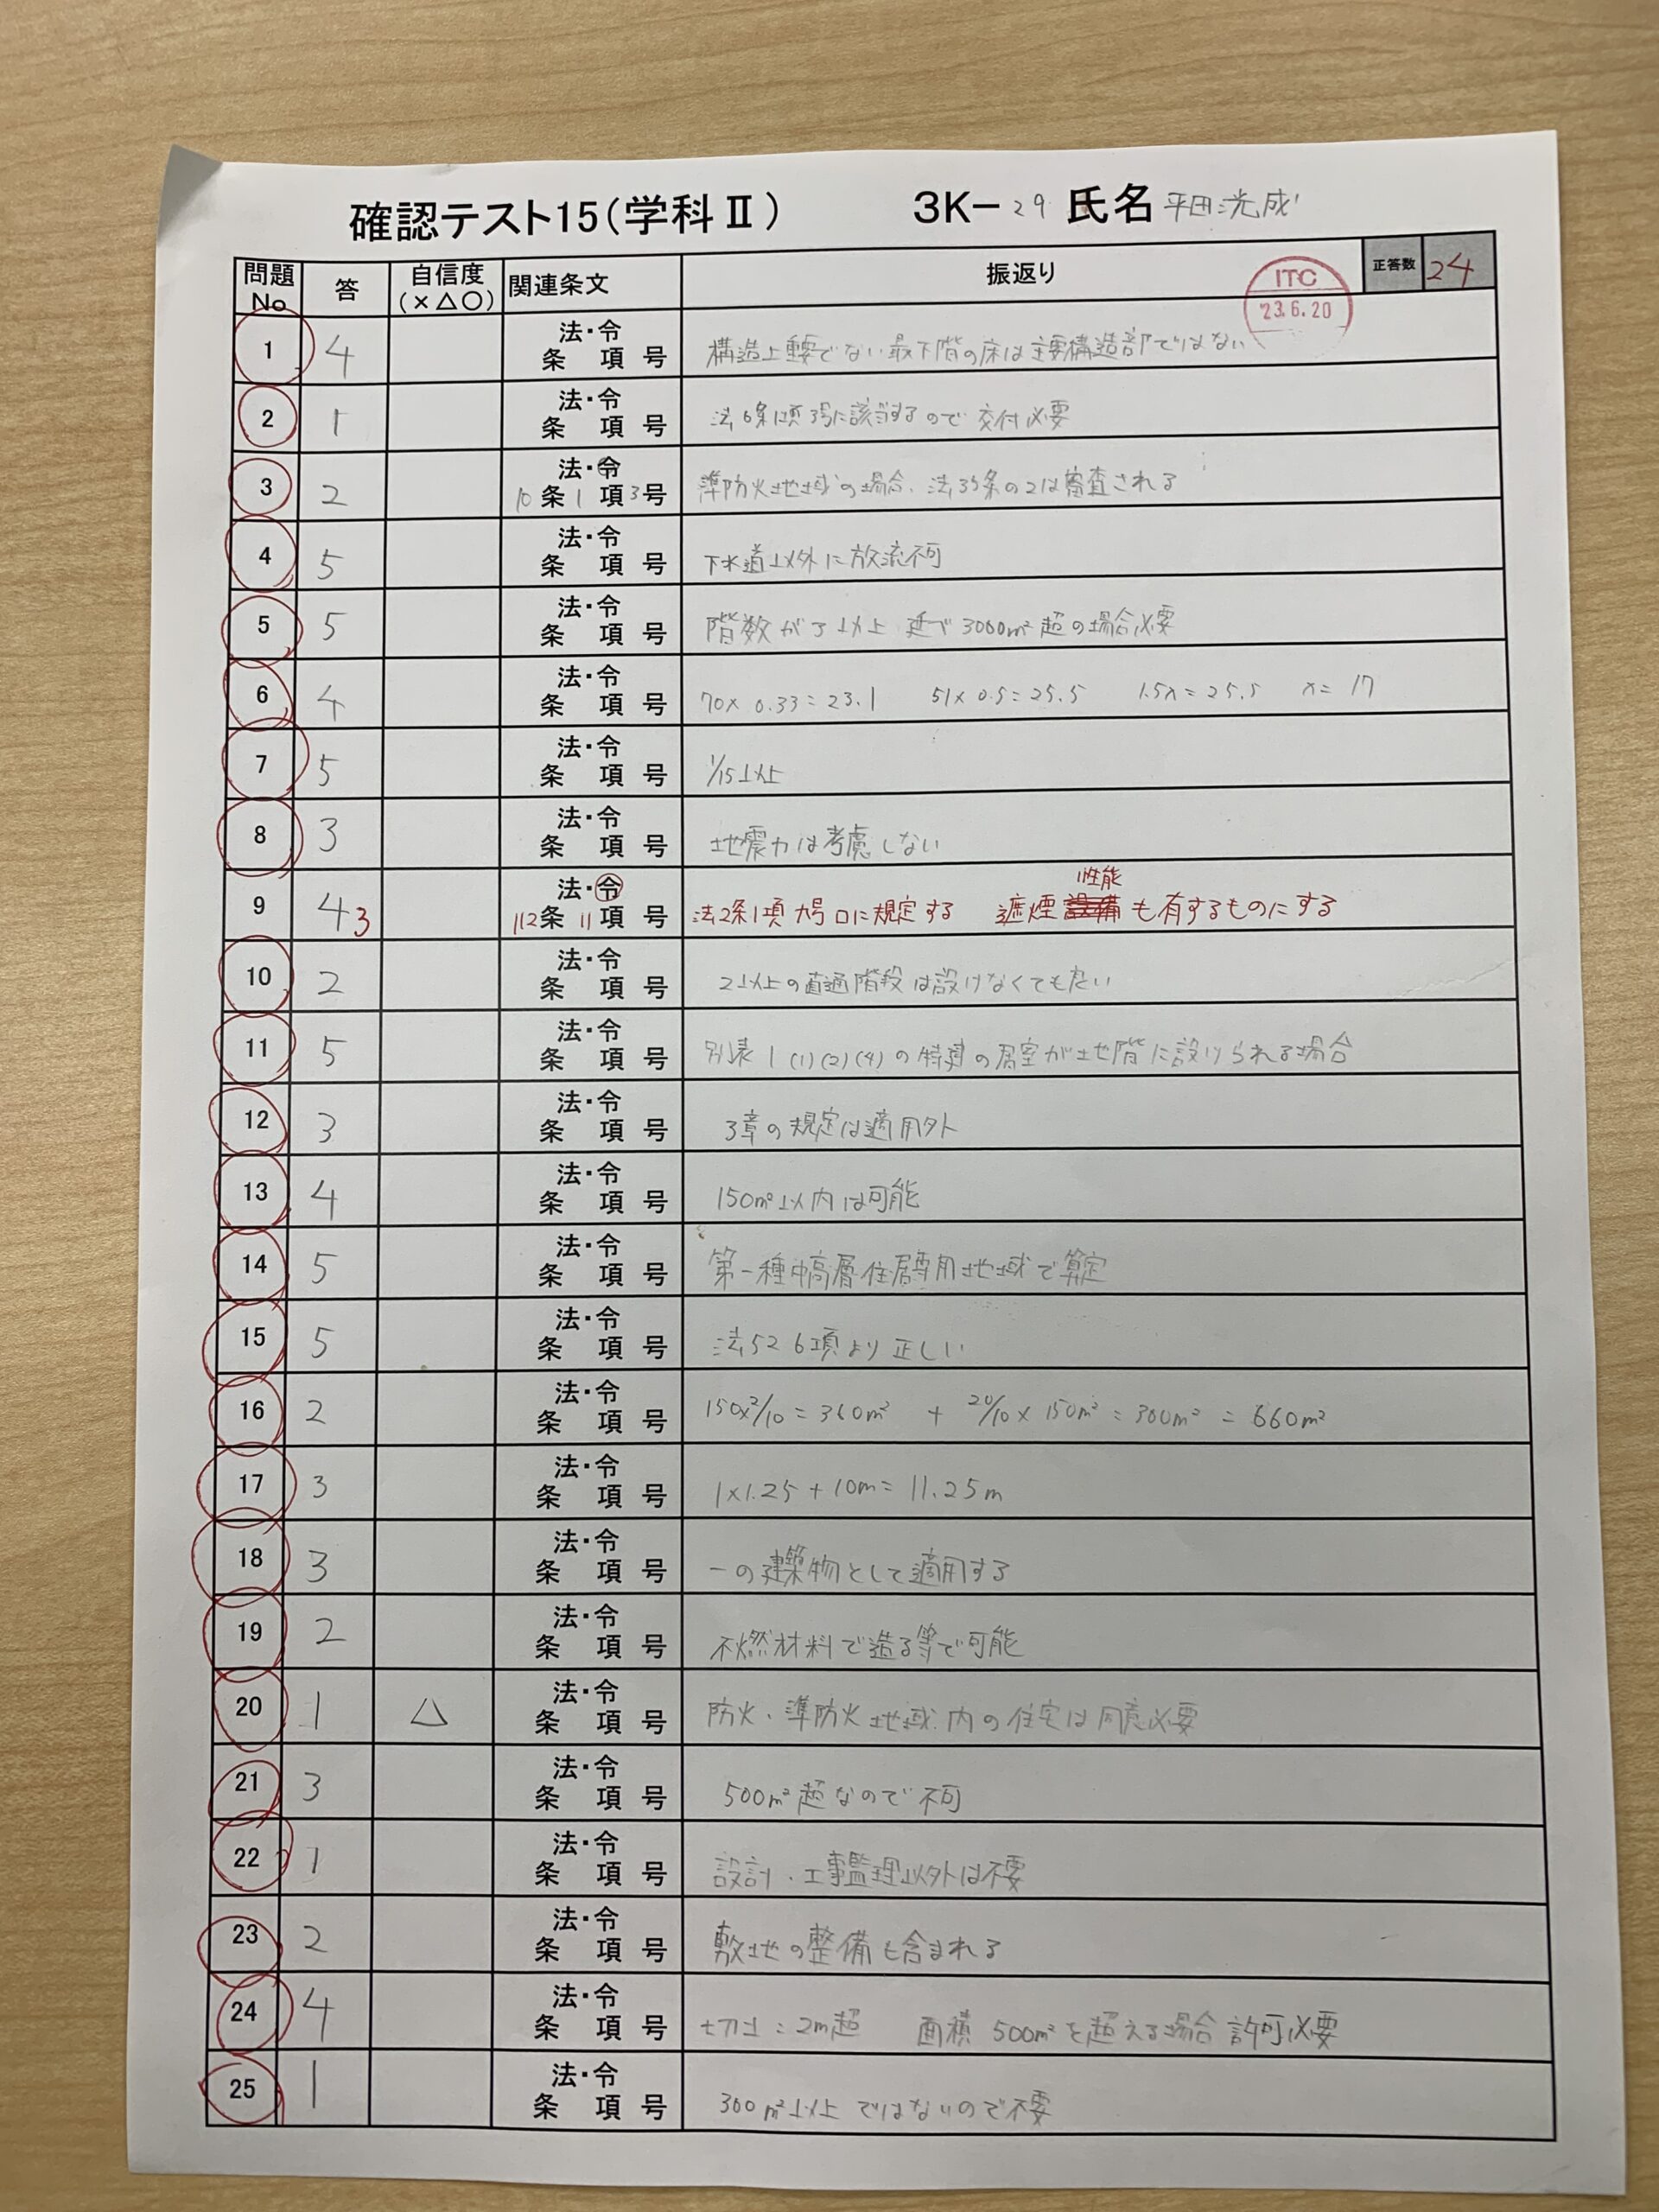 確認テスト15(学科Ⅱ) 3K-29 氏名 平田光成
問題No 答 自信度(×△○) 関連条文 振返り 正答数 24
ITC
23.6.20
1 4 法・令 条 項 号 構造上重要でない最下階の床は主要構造部ではない
2 1 法・令 条 項 号 法6条1項3号に該当するので交付必要
3 2 法・令 10条1項3号 準防火地域の場合、法35条の2は審査される
4 5 法・令 条 項 号 下水道以外に放流不可
5 5 法・令 条 項 号 階数が3以上 延べ3000m²超の場合必要
6 4 法・令 条 項 号 70×0.33=23.1 51×0.5=25.5 1.5x=25.5 x=17
7 5 法・令 条 項 号 1/15以上
8 3 法・令 条 項 号 地震力は考慮しない
9 4 3 法・令 112条11項 号 法2条1項九号ロに規定する 遮煙性能も有するものにする
10 2 法・令 条 項 号 2以上の直通階段は設けなくてもよい
11 5 法・令 条 項 号 別表1(1)(2)(4)の特建の居室が地階に設けられる場合
12 3 法・令 条 項 号 3章の規定は適用外
13 4 法・令 条 項 号 150m²以内は可能
14 5 法・令 条 項 号 第一種中高層住居専用地域で算定
15 5 法・令 条 項 号 法52 6項より正しい
16 2 法・令 条 項 号 150×2/10=360m² + 20/10×150m²=300m² = 660m²
17 3 法・令 条 項 号 1×1.25+10m=11.25m
18 3 法・令 条 項 号 一の建築物として適用する
19 2 法・令 条 項 号 不燃材料で造る等で可能
20 1 △ 法・令 条 項 号 防火、準防火地域内の住宅は同意必要
21 3 法・令 条 項 号 500m²超なので不可
22 1 法・令 条 項 号 設計、工事監理以外は不要
23 2 法・令 条 項 号 敷地の整備も含まれる
24 4 法・令 条 項 号 切土:2m超 面積500m²を超える場合許可必要
25 1 法・令 条 項 号 300m²以上ではないので不要